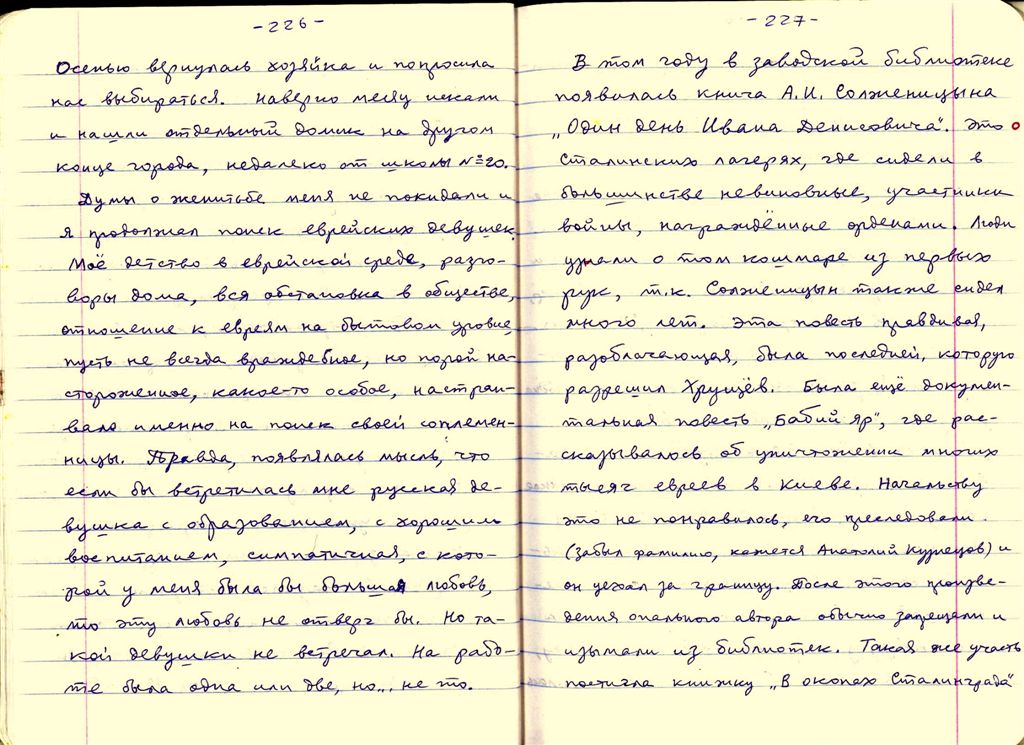 -226-
Осенью вернулась хозяйка и попросила
нас выбираться. Наверно месяц искали
и нашли отдельный домик на другом
конце города, недалеко от школы №20.
Думы о женитьбе меня не покидали и
я продолжал поиск еврейских девушек.
Моё детство в еврейской среде, разго-
воры дома, вся обстановка в обществе,
отношение к евреям на бытовом уровне,
пусть не всегда враждебное, но порой на-
стороженное, какое-то особое, настраи-
вало именно на поиск своей соплемен-
ницы. Правда, появлялась мысль, что
если бы встретилась мне русская де-
вушка с образованием, с хорошим
воспитанием, симпатичная, с кото-
рой у меня была бы большая любовь,
то эту любовь не отверг бы. Но та-
кой девушки не встречал. На рабо-
те была одна или две, но... не то.
-227-
В том году в заводской библиотеке
появилась книга А.И. Солженицына
„Один день Ивана Денисовича". Это о
сталинских лагерях, где сидели в
большинстве невиновные, участники
войны, награждённые орденами. Люди
узнали о том кошмаре из первых
рук, т.к. Солженицын также сидел
много лет. Эта повесть правдивая,
разоблачающая, была последней, которую
разрешил Хрущёв. Была ещё докумен-
тальная повесть „Бабий яр", где рас-
сказывалось об уничтожении многих
тысяч евреев в Киеве. Начальству
это не понравилось, его преследовали.
(забыл фамилию, кажется Анатолий Кузнецов) и
он уехал за границу. После этого произве-
дения опального автора обычно запрещали и
изымали из библиотек. Такая же участь
постигла книжку „В окопах Сталинграда"